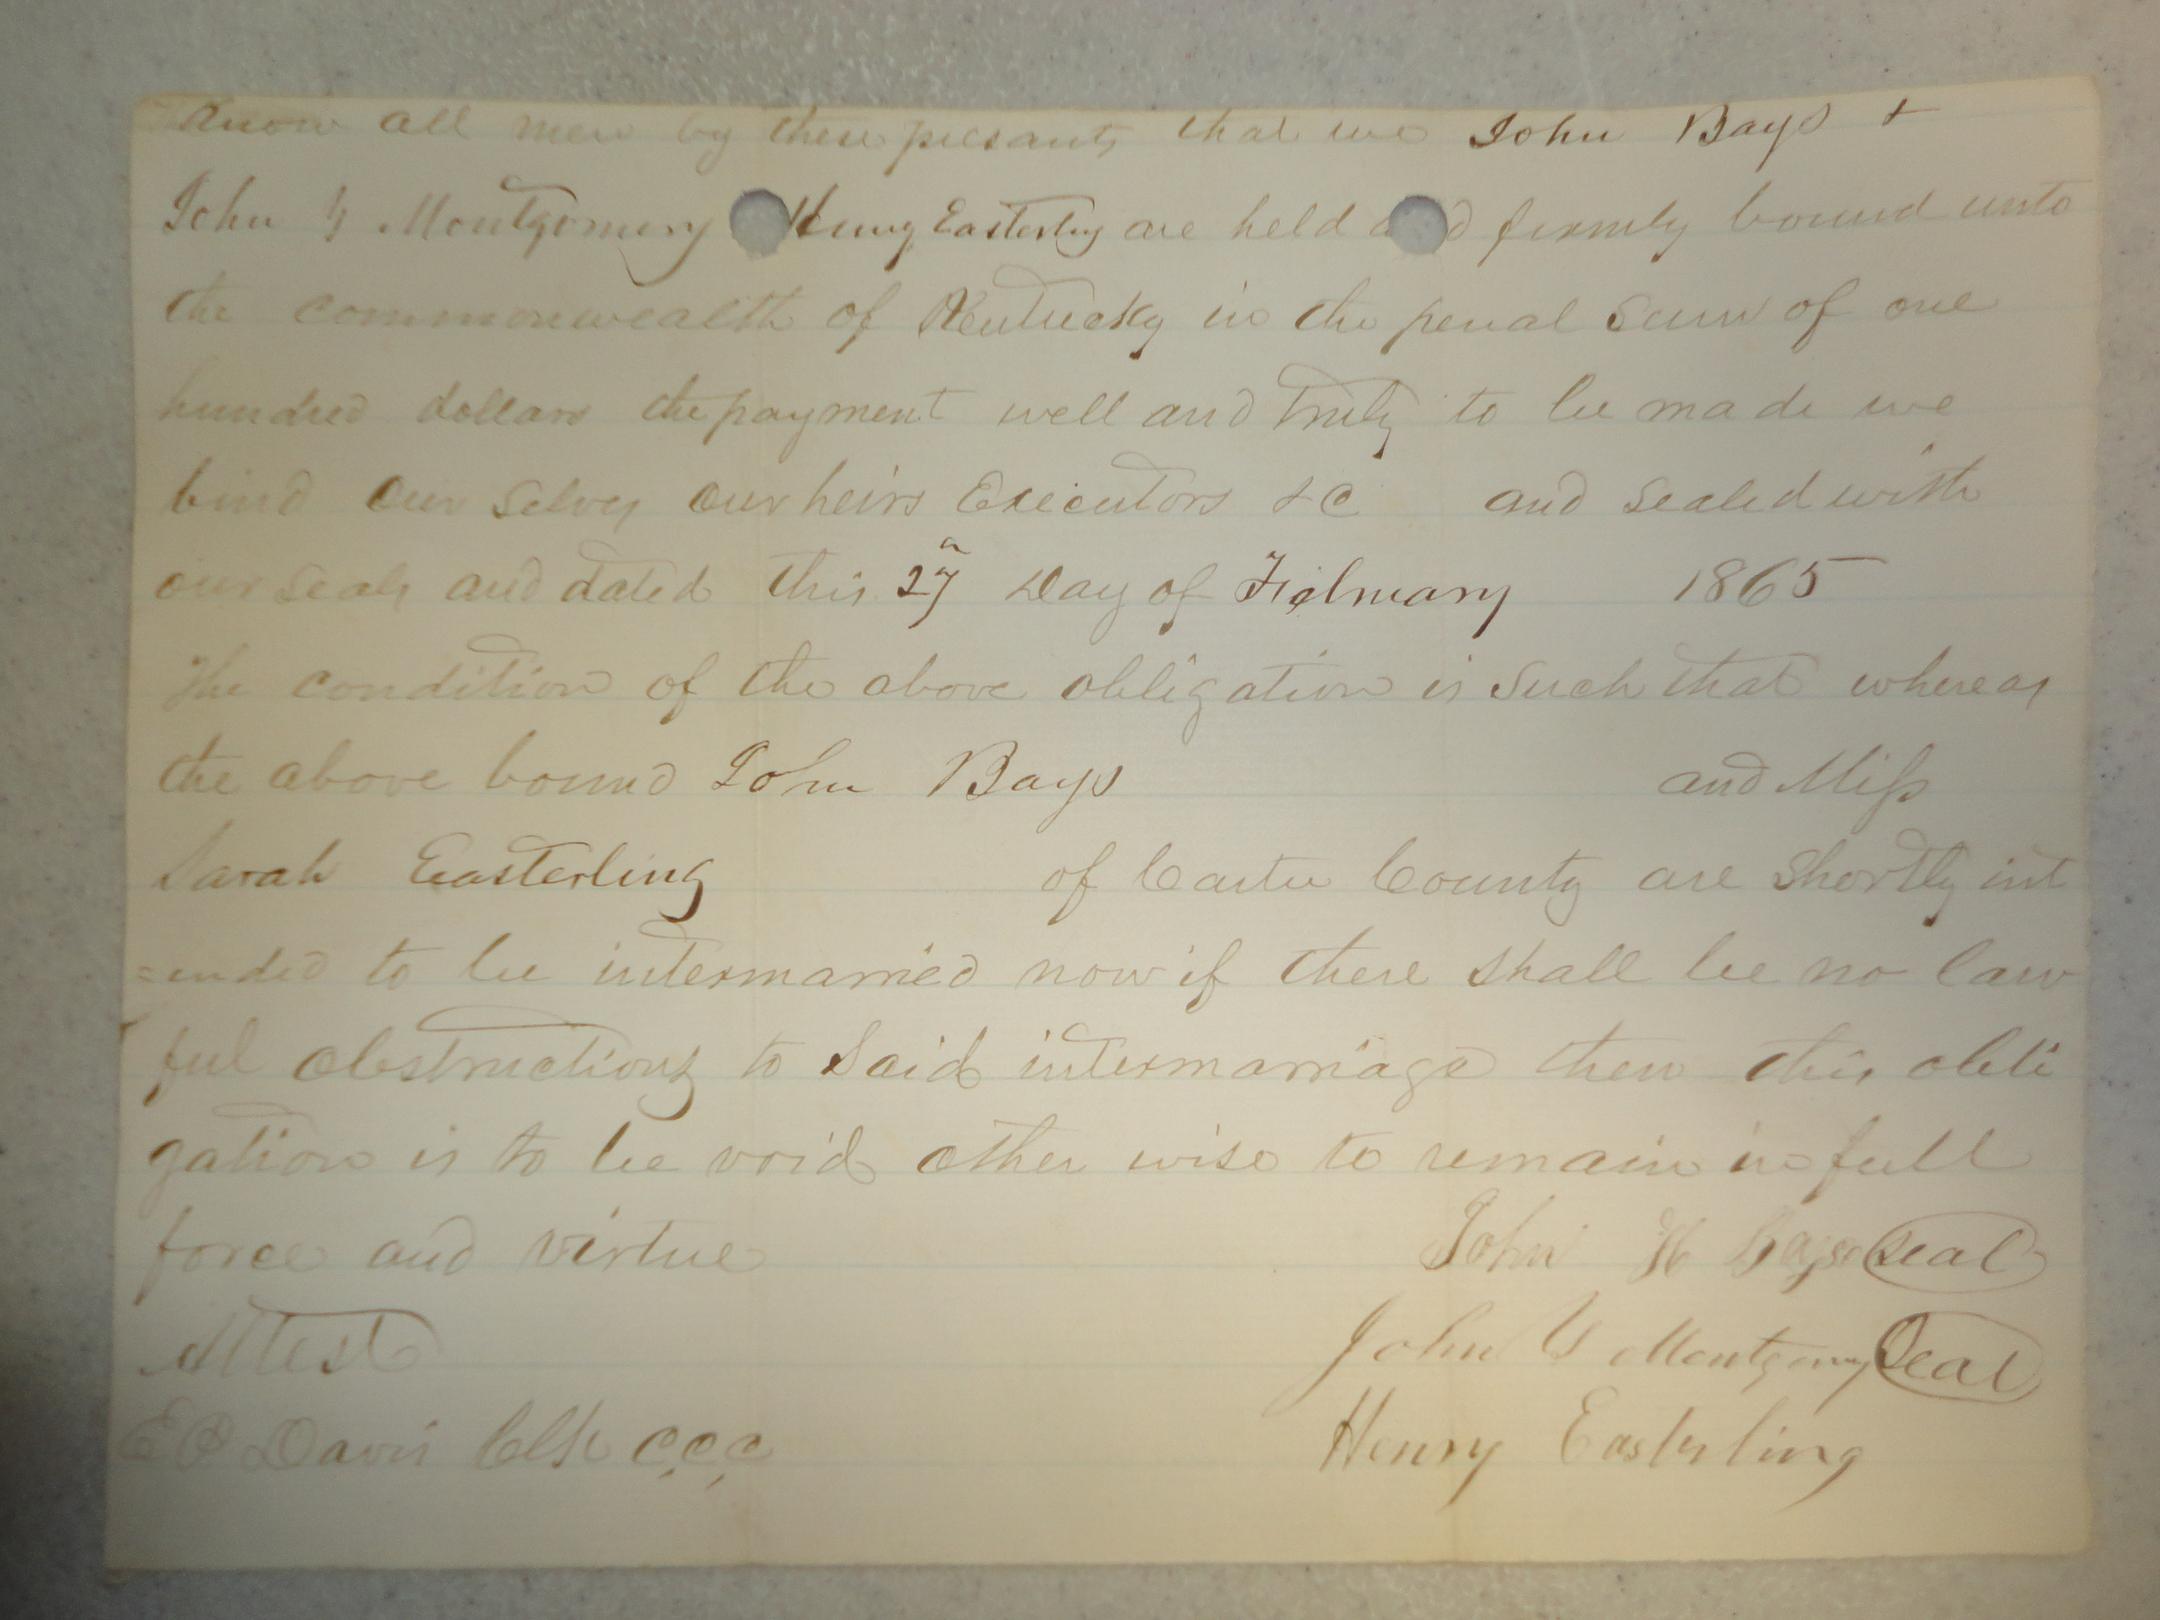 Know all men by these presants that we John Bays +
John G Montgomery Henry Easterling are held and firmly bound unto
the commonwealth of Kentucky in the penal sum of one
hundred dollars the payment well and truly to be made we
bind our selves our heirs Executors &C and sealed with
our seals and dated this 27 Day of February 1865
The condition of the above obligation is such that whereas
the above bound John Bays and Miss
Sarah Easterling of Carter County are shortly int
=ended to be intermarried now if there shall be no law
ful obstructions to said intermarriage then this obli
gation is to be void other wise to remain in full
force and virtue John H Bays Seal
Attest John G Montgomery Seal
Davis Clk C.C.C. Henry Easterling